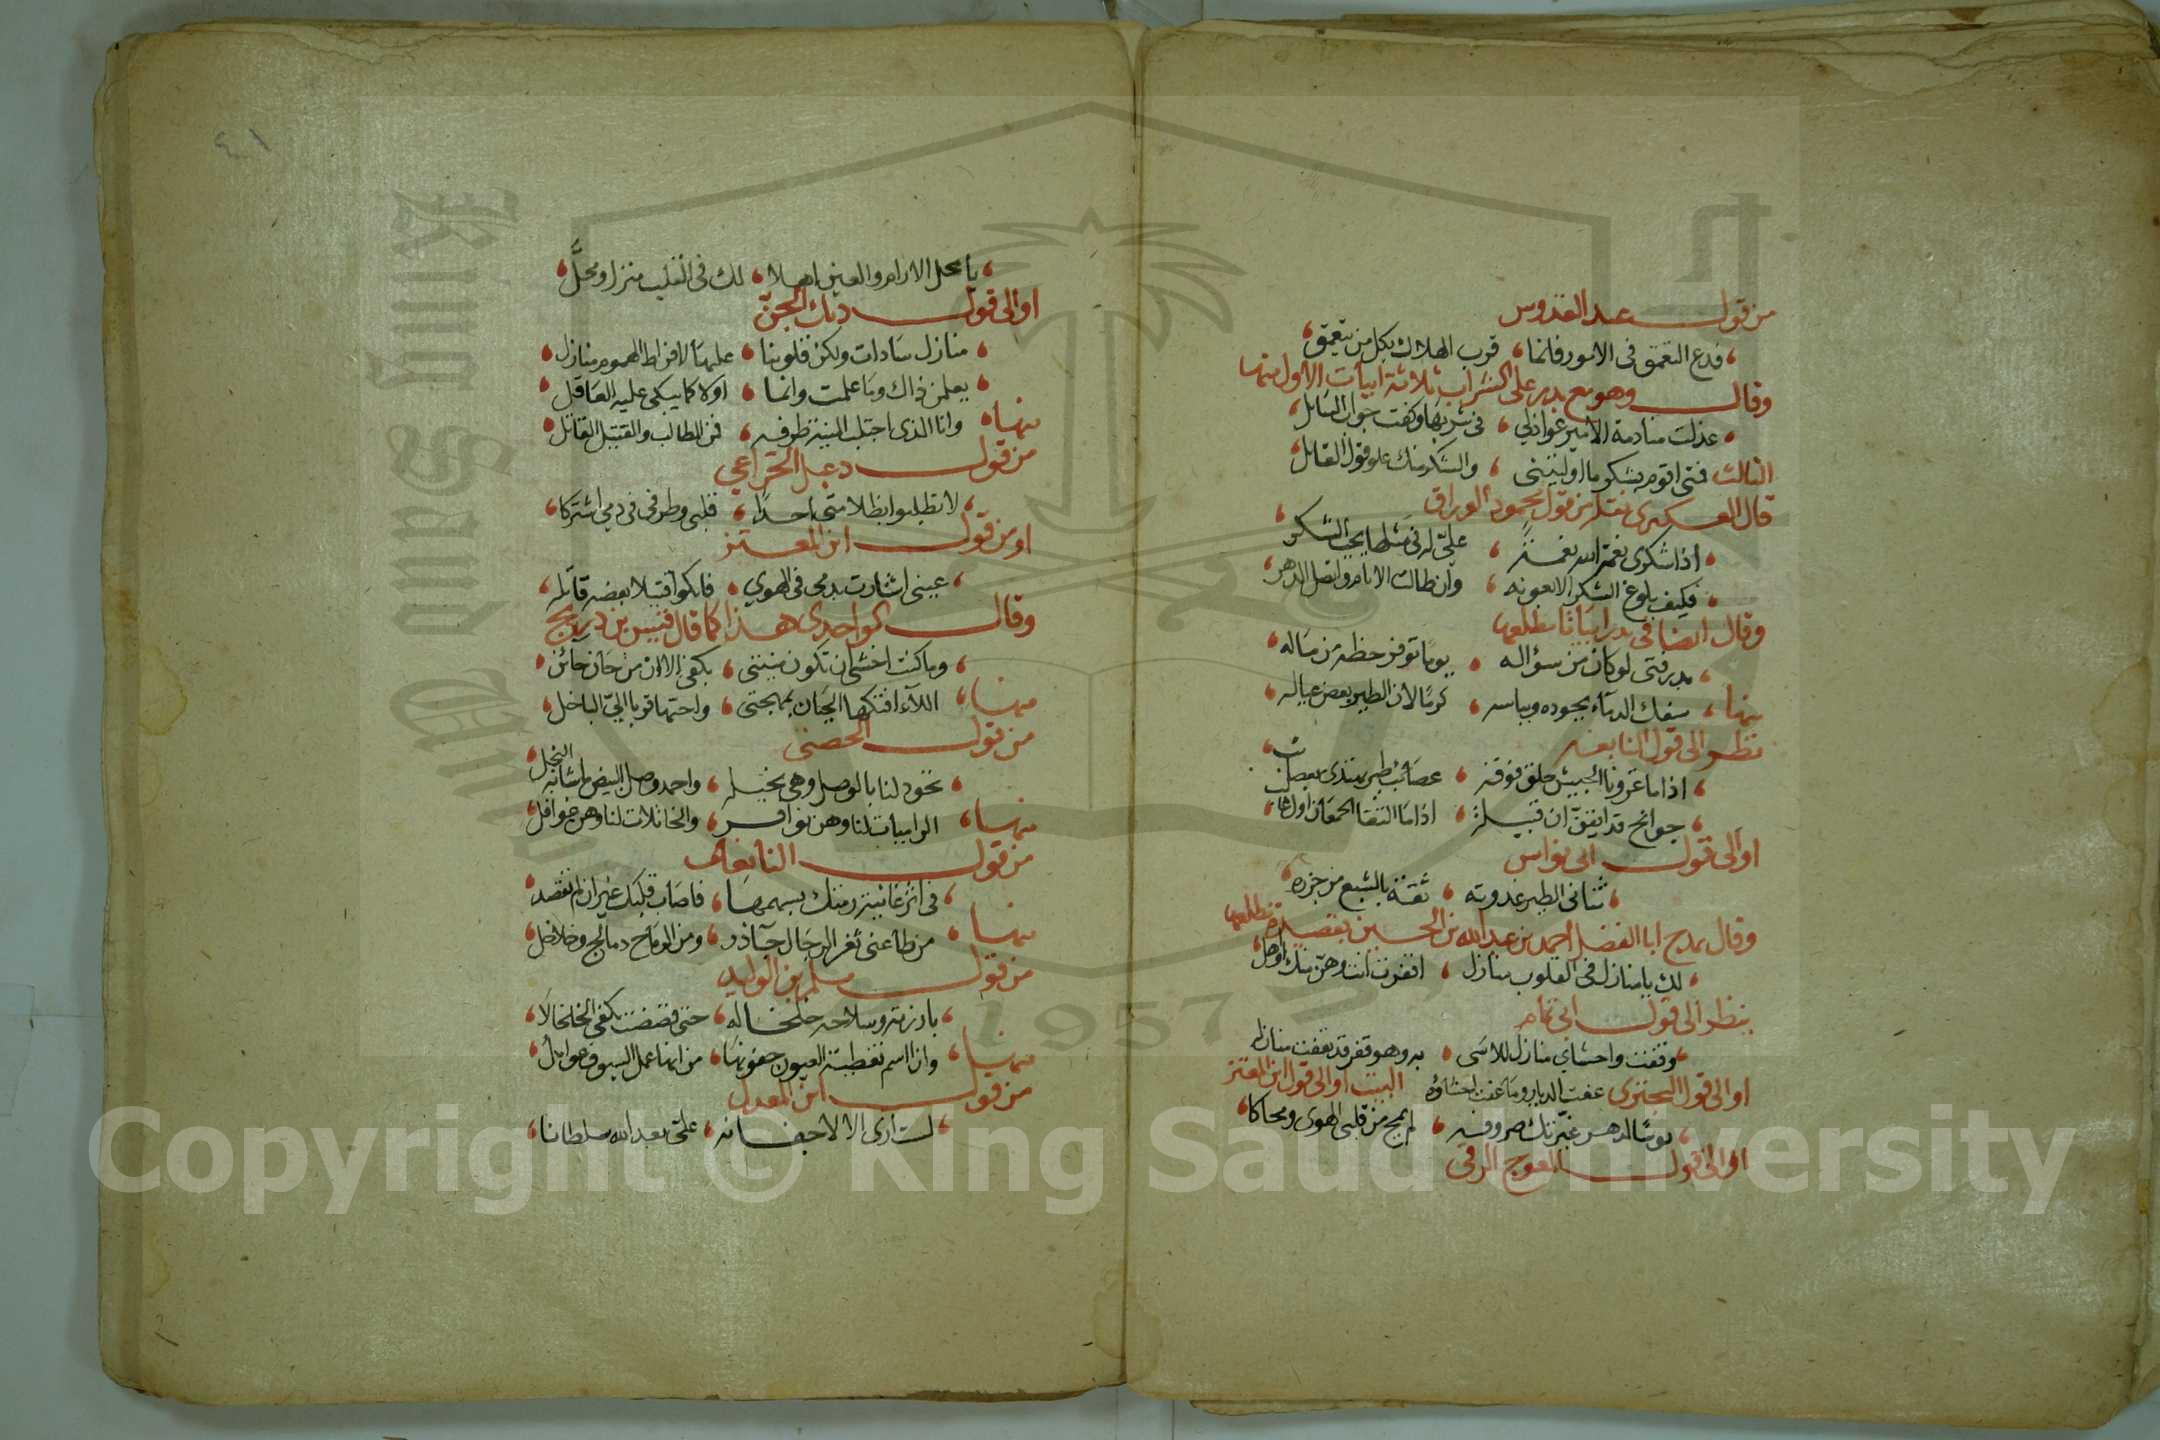 من قول عبد القدوس
فدع التعمق في الامور فانما ، قرب الهلاك بكل من يتعمق
وقال وهو مع بدر على الشراب ثلاثة ابيات الاول منها
عذلت منادمة الامير عواذلي ، في شربها وكفت جواب السايل
الثالث فمتى اقوم بشكر ما اوليتني ، والشكر منك علو قول القايل
قال العكبري نقله من قول محمود الوراق
اذا شكري نعمة الله نعمة ، علي له في مثلها يجب الشكر
فكيف بلوغ الشكر الا بعونه ، وان طالت الايام واتصل الدهر
وقال ايضا في بدر ابياتا مطلعها
بدر فتى لو كان من سؤاله ، يوما توفر حظه من ماله
منها ، سفك الدماء بجوده وبباسه ، كرما لان الطير بعض عياله
نظر الى قول النابغه
اذا ما غزونا الجيش حلق فوقه ، عصائب طير يهتدي بعصائب
جوانح قد ايقن ان قبيلة ، اذا ما التقا الجمعان اول
او الى قول ابي نواس
تتانى الطير غدوته ، ثقة بالشبع من جزره
وقال يمدح ابا الفضل احمد بن عبد الله بن الحسين بقصيدة مطلعها
لك يا منازل في القلوب منازل ، اقفرت انت وهن منك اواهل
ينظر الى قول ابي تمام
وقفت واحشاي منازل للاسى ، به وهو قفر قد تعفت منازله
او الى قول البحتري عفت الديار وما عفت احشاؤه البيت او الى قول ابن المعتز
بوسا لدهر غيرتك صروفه ، لم يمح من قلبي الهوى ومحاكا
او الى قول المعوج الرقي
يا محل الارام والعين اهلا ، لك في القلب منزل ومحل
او الى قول ديك الجن
منازل سادات ولكن قلوبنا ، عليها لافراط الهموم منازل
يعلمن ذاك وما علمت وانما ، اولاكما يبكى عليه العاقل
منها ، وانا الذي اجتلب المنية طرفه ، فمن الطالب والقتيل القاتل
من قول دعبل الخزاعي
لا تطلبوا بظلامتي احدا ، قلبي وطرفي في دمي اشتركا
او من قول ابن المعتز
عيني اشارت بدمي في الهوى ، فابكوا قتيلا بعضه قاتله
وقال الواحدي هذا كما قال قيس بن ذريح
وما كنت اخشى ان تكون منيتي ، بكفي الا ان من حان حائن
منها ، اللاء افتكها الجبان بمهجتي ، واحبها قربا الي الباخل
من قول الحصني
تجود لنا بالوصل وهي بخيله ، واحمد وصل البيض ما شانه البخل
منها ، الراميات لنا وهن نوافر ، والخاتلات لنا وهن غوافل
من قول النابغه
في اثر غانية رمتك بسهمها ، فاصاب قلبك غير ان لم تقصد
منها ، من طاعني ثغر الرجال جآذر ، ومن الرماح دمالج وخلاخل
من قول مسلم بن الوليد
بارزته وسلاحه خلخاله ، حتى فضضت بكفي الخلخالا
منها ، وانا اسم تغطية العيون جفونها ، من انها عمل السيوف عوامل
من قول ابن المعدل
لست ارى الا لاجفانه ، علي بعد الله سلطانا
Copyright © King Saud University
1957